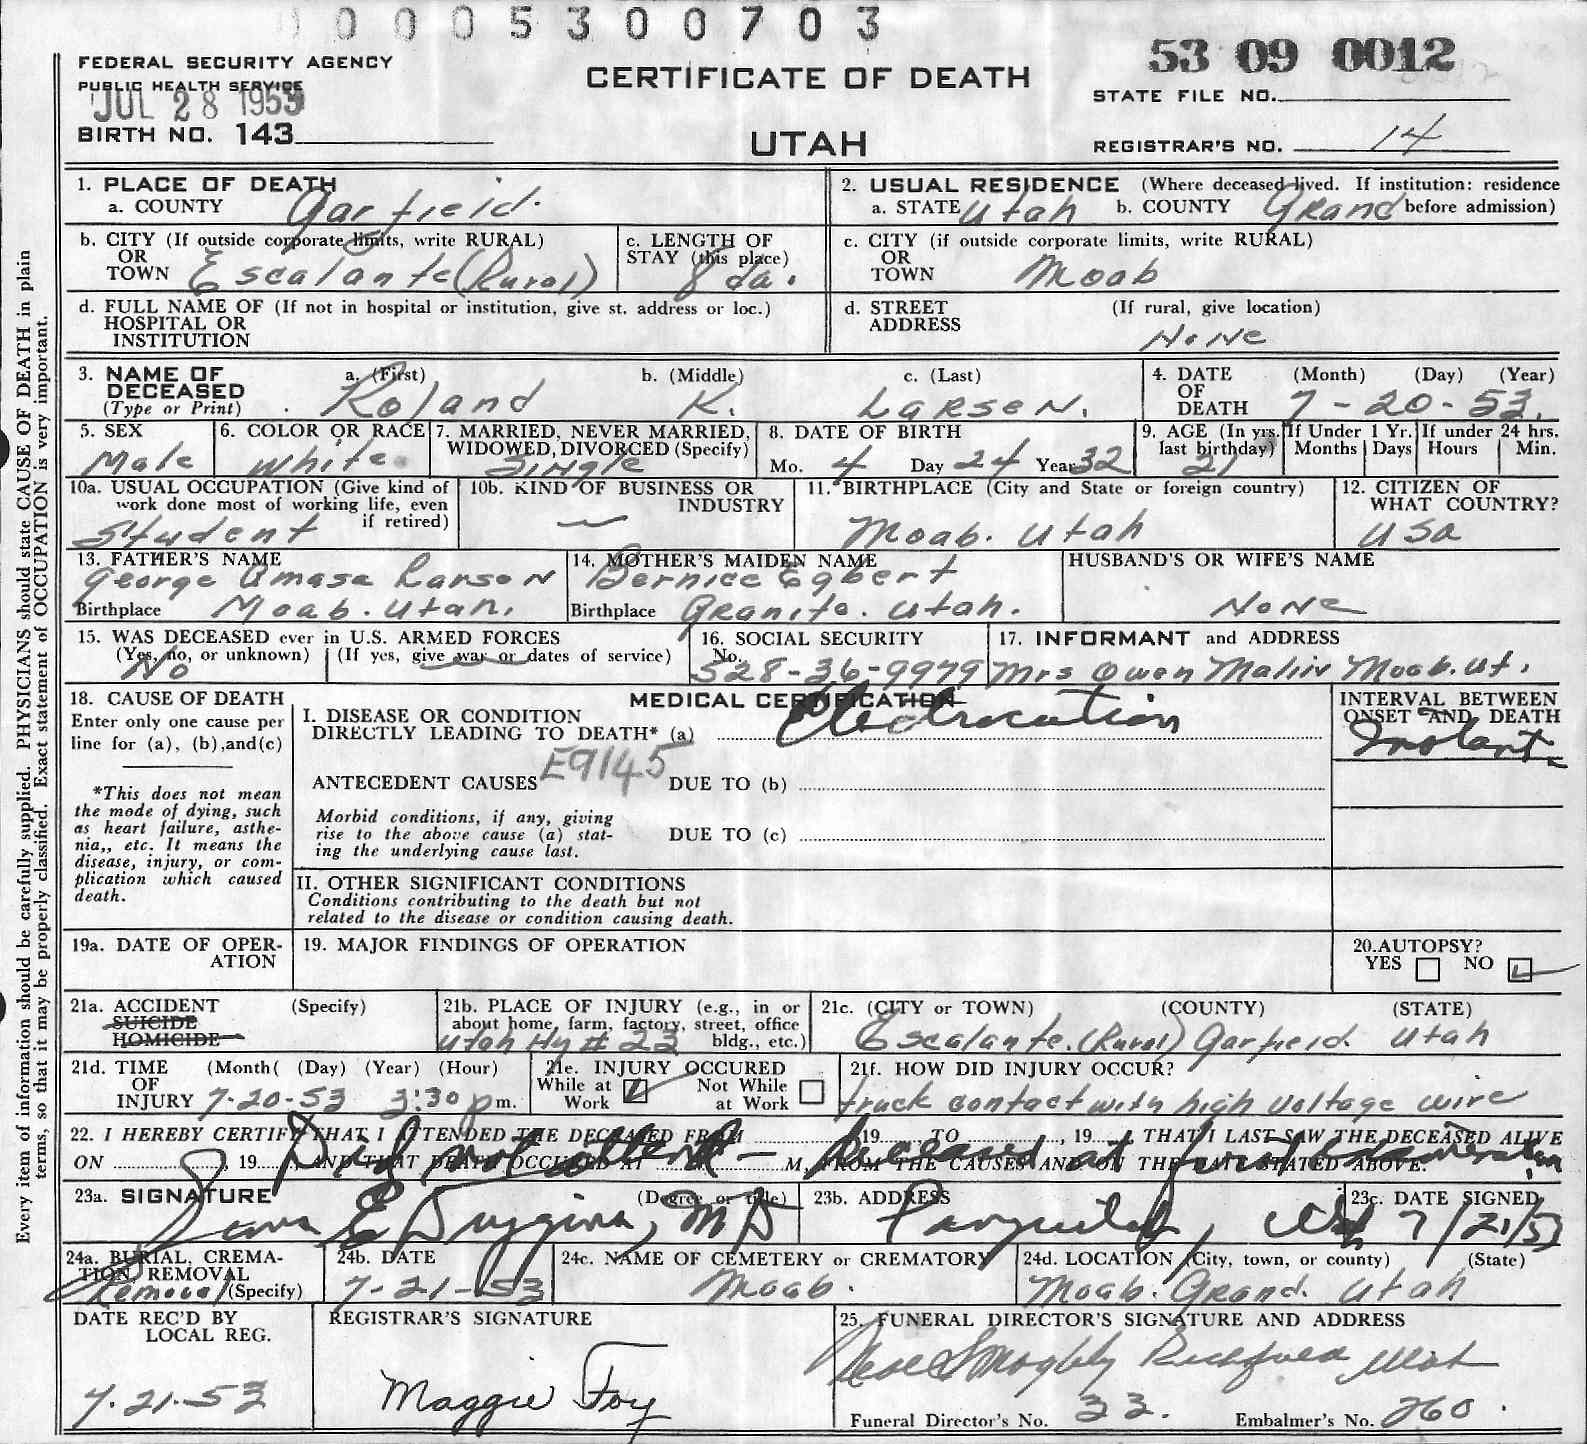 0 0 0 5 3 0 0 7 0 3
FEDERAL SECURITY AGENCY
PUBLIC HEALTH SERVICE
JUL 28 1953
BIRTH NO. 143
CERTIFICATE OF DEATH
UTAH
53 09 0012
STATE FILE NO.
REGISTRAR'S NO. 14
Every item of information should be carefully supplied. PHYSICIANS should state CAUSE OF DEATH in plain
terms, so that it may be properly classified. Exact statement of OCCUPATION is very important.
1. PLACE OF DEATH
a. COUNTY Garfield.
2. USUAL RESIDENCE (Where deceased lived. If institution: residence
a. STATE Utah b. COUNTY Grand before admission)
b. CITY (If outside corporate limits, write RURAL)
OR
TOWN Escalante (Rural)
c. LENGTH OF
STAY (this place)
8 da.
c. CITY (if outside corporate limits, write RURAL)
OR
TOWN Moab
d. FULL NAME OF (If not in hospital or institution, give st. address or loc.)
HOSPITAL OR
INSTITUTION
d. STREET (If rural, give location)
ADDRESS
None
3. NAME OF DECEASED
(Type or Print)
a. (First) b. (Middle) c. (Last)
Roland K. Larsen.
4. DATE OF DEATH (Month) (Day) (Year)
7-20-53.
5. SEX
Male
6. COLOR OR RACE
White
7. MARRIED, NEVER MARRIED,
WIDOWED, DIVORCED (Specify)
Single
8. DATE OF BIRTH
Mo. 4 Day 24 Year 32
9. AGE (In yrs. last birthday)
21
If Under 1 Yr.
Months Days
If under 24 hrs.
Hours Min.
10a. USUAL OCCUPATION (Give kind of
work done most of working life, even
if retired)
Student
10b. KIND OF BUSINESS OR
INDUSTRY
11. BIRTHPLACE (City and State or foreign country)
Moab. Utah
12. CITIZEN OF
WHAT COUNTRY?
USA
13. FATHER'S NAME
George Amasa Larsen
Birthplace Moab. Utah.
14. MOTHER'S MAIDEN NAME
Bernice Egbert
Birthplace Granite. Utah.
HUSBAND'S OR WIFE'S NAME
None
15. WAS DECEASED ever in U.S. ARMED FORCES
(Yes, no, or unknown) (If yes, give war or dates of service)
No
16. SOCIAL SECURITY
No.
528-36-9979
17. INFORMANT and ADDRESS
Mrs Owen Malin Moab. Ut.
18. CAUSE OF DEATH
Enter only one cause per
line for (a), (b), and (c)
*This does not mean
the mode of dying, such
as heart failure, asthe-
nia,, etc. It means the
disease, injury, or com-
plication which caused
death.
MEDICAL CERTIFICATION
I. DISEASE OR CONDITION
DIRECTLY LEADING TO DEATH* (a) Electrocution
ANTECEDENT CAUSES E9145 DUE TO (b)
Morbid conditions, if any, giving
rise to the above cause (a) stat-
ing the underlying cause last.
DUE TO (c)
INTERVAL BETWEEN
ONSET AND DEATH
Instant
II. OTHER SIGNIFICANT CONDITIONS
Conditions contributing to the death but not
related to the disease or condition causing death.
19a. DATE OF OPER-
ATION
19. MAJOR FINDINGS OF OPERATION
20. AUTOPSY?
YES NO
21a. ACCIDENT (Specify)
SUICIDE
HOMICIDE
21b. PLACE OF INJURY (e.g., in or
about home, farm, factory, street, office
bldg., etc.)
Utah Hy # 23
21c. (CITY or TOWN) (COUNTY) (STATE)
Escalante. (Rural) Garfield Utah
21d. TIME OF INJURY (Month( (Day) (Year) (Hour)
7-20-53 3:30 pm.
21e. INJURY OCCURED
While at Work Not While at Work
21f. HOW DID INJURY OCCUR?
truck contact with high voltage wire
22. I HEREBY CERTIFY THAT I ATTENDED THE DECEASED FROM 19 TO , 19 THAT I LAST SAW THE DECEASED ALIVE
ON , 19 AND THAT DEATH OCCURED AT M, FROM THE CAUSES AND ON THE DATE STATED ABOVE.
Did not attend - Deceased at first examination
23a. SIGNATURE (Degree or title)
E Duggins, MD
23b. ADDRESS
Panguitch, Utah
23c. DATE SIGNED
7/21/53
24a. BURIAL, CREMA-
TION, REMOVAL
(Specify)
Removal
24b. DATE
7-21-53
24c. NAME OF CEMETERY or CREMATORY
Moab.
24d. LOCATION (City, town, or county) (State)
Moab. Grand. Utah
DATE REC'D BY
LOCAL REG.
7.21.53
REGISTRAR'S SIGNATURE
Maggie Foy
25. FUNERAL DIRECTOR'S SIGNATURE AND ADDRESS
Richfield Utah
Funeral Director's No. 33. Embalmer's No. 260.